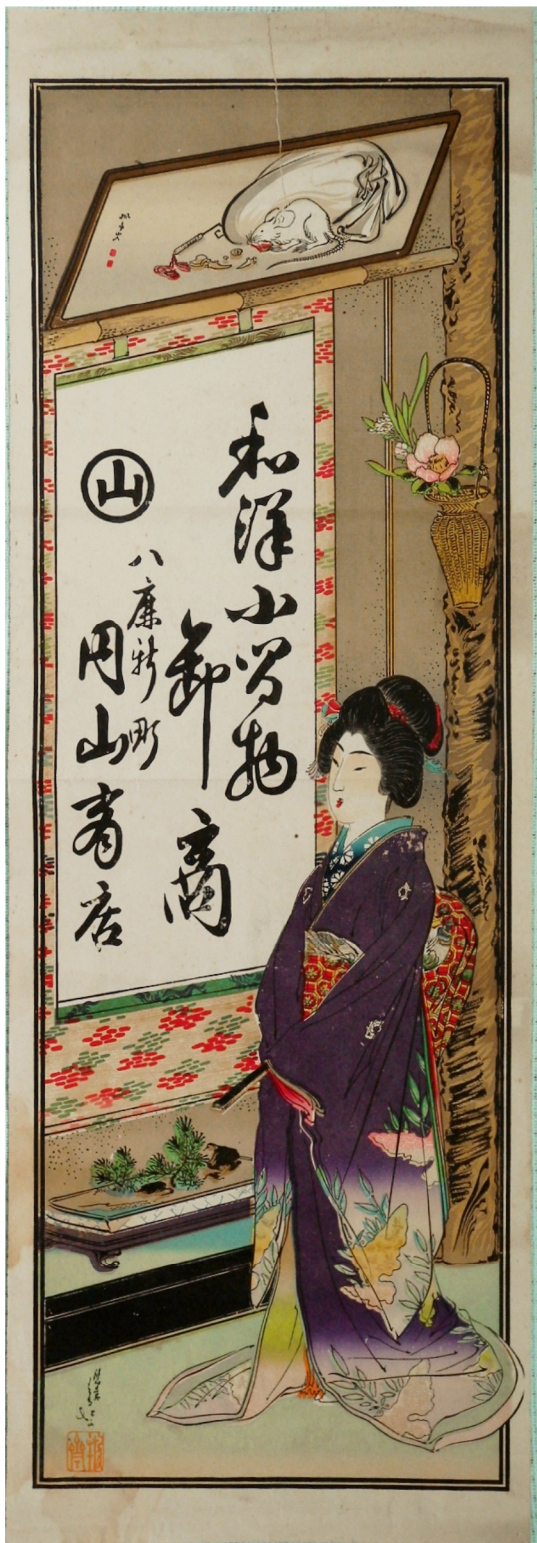 和洋小間物
卸商
山
八鹿新町
円山商店